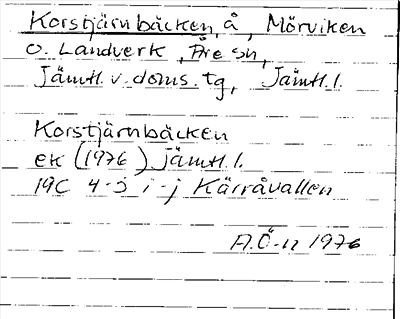 Korstjärnbäcken, å, Mörviken
o. Landverk, Åre sn,
Jämtl. v. doms. tg, Jämtl. l.
Korstjärnbäcken
ek (1976) Jämtl. l.
19C 4-5 i-j Kärråvallen
A.Ö-n 1976